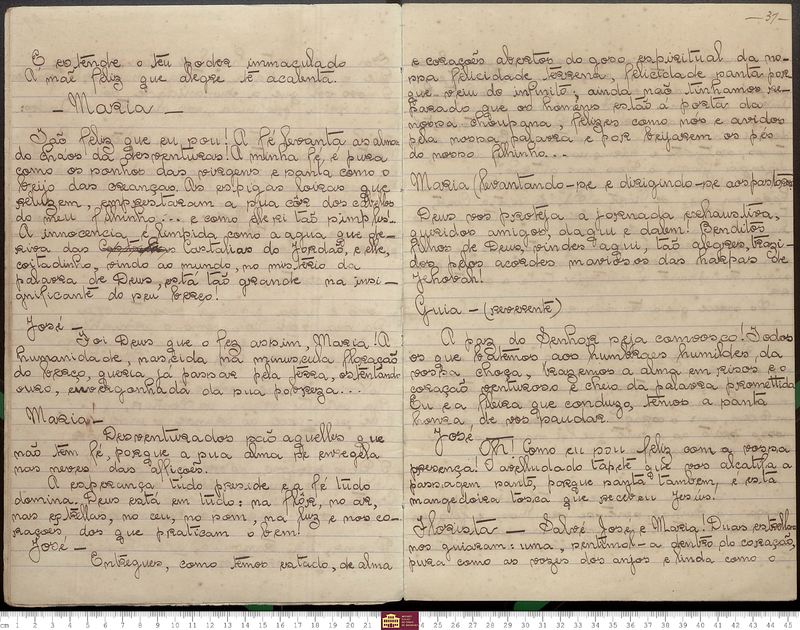 E estende o teu poder immaculado
A mãe feliz que alegre te acalenta.
— Maria —
Tão feliz que eu sou! A fé levanta as almas
do chaos das desventuras! A minha fé, é pura
como os sonhos das virgens e santa como o
beijo das creanças. As espigas loiras que
reluzem, emprestaram a sua côr dos cabellos
do meu filhinho... e como elle é tão simples...
A innocencia é limpida como a agua que de-
riva das Castalias do Jordão, e elle,
coitadinho, vindo ao mundo, no misterio da
palavra de Deus, está tão grande na insi-
gnificante do seu berço!
José —
Foi Deus que o fez assim, Maria! A
humanidade, nascida na minuscula floração
do berço, queria já passar pela terra, ostentando
ouro, envergonhada da sua pobreza...
Maria —
Desventurados são aquelles que
não tem fé, porque a sua alma se enregela
nas neves das afflições.
A esperança tudo preside e a fé tudo
domina. Deus está em tudo: na flôr, no ar,
nas estrellas, no ceu, no som, na luz e nos co-
rações dos que praticam o bem!
José —
Entregues, como temos estado, de alma
— 37 —
e corações abertos do goso espiritual da no-
ssa felicidade terrena, felicidade santa por
que veiu do infinito, ainda não tinhamos re-
parado que os homens estão á porta da
nossa choupana, felizes como nós e avidos
pela nossa palavra e por beijarem os pés
do nosso filhinho...
Maria (levantando-se e dirigindo-se aos pastores)
Deus vos proteja a jornada exhaustiva,
queridos amigos, daqui e dalem! Benditos
filhos de Deus, vindes aqui, tão alegres, trazi-
dos pelos acordes maviosos das harpas de
Jehovah!
Guia — (reverente)
A paz do Senhor seja comvosco! Todos
os que batemos aos humbraes humildes da
vossa choça, trazemos a alma em risos e o
coração venturoso e cheio da palavra promettida.
Eu e a fileira que conduzo, temos a santa
honra, de vos saudar.
José —
Oh! Como eu sou feliz com a vossa
presença! Avelludado tapete que vos alcatifa a
passagem santo, porque santa tambem, é esta
mangedoira tosca que recebeu Jesus.
Florista — Salvé José e Maria! Duas estrellas
nos guiaram: uma, sentimol-a dentro do coração,
pura como as vozes dos anjos e linda como o